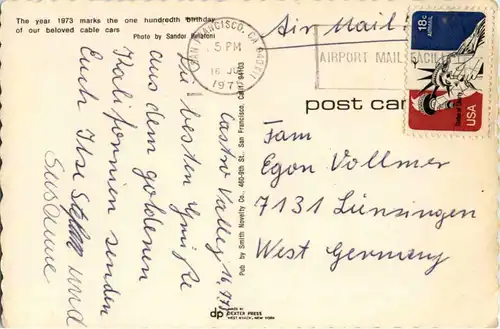 The year 1973 marks the one hundredth birthday
of our beloved cable cars
Photo by Sandor Balatoni
Air Mail!
SAN FRANCISCO, CA
5 PM
16 JUL
197
AIRPORT MAIL FACILITY
18c
AIRMAIL
USA
post card
Castro Valley 16.
Die besten Grüße
aus dem goldenen
Kalifornien senden
Euch Ilse und
Susanne
Pub by Smith Novelty Co., 460-9th St., San Francisco, Calif. 94103
Fam
Egon Vollmer
7131 Lünzingen
West Germany
dp
MADE BY
DEXTER PRESS
WEST NYACK, NEW YORK